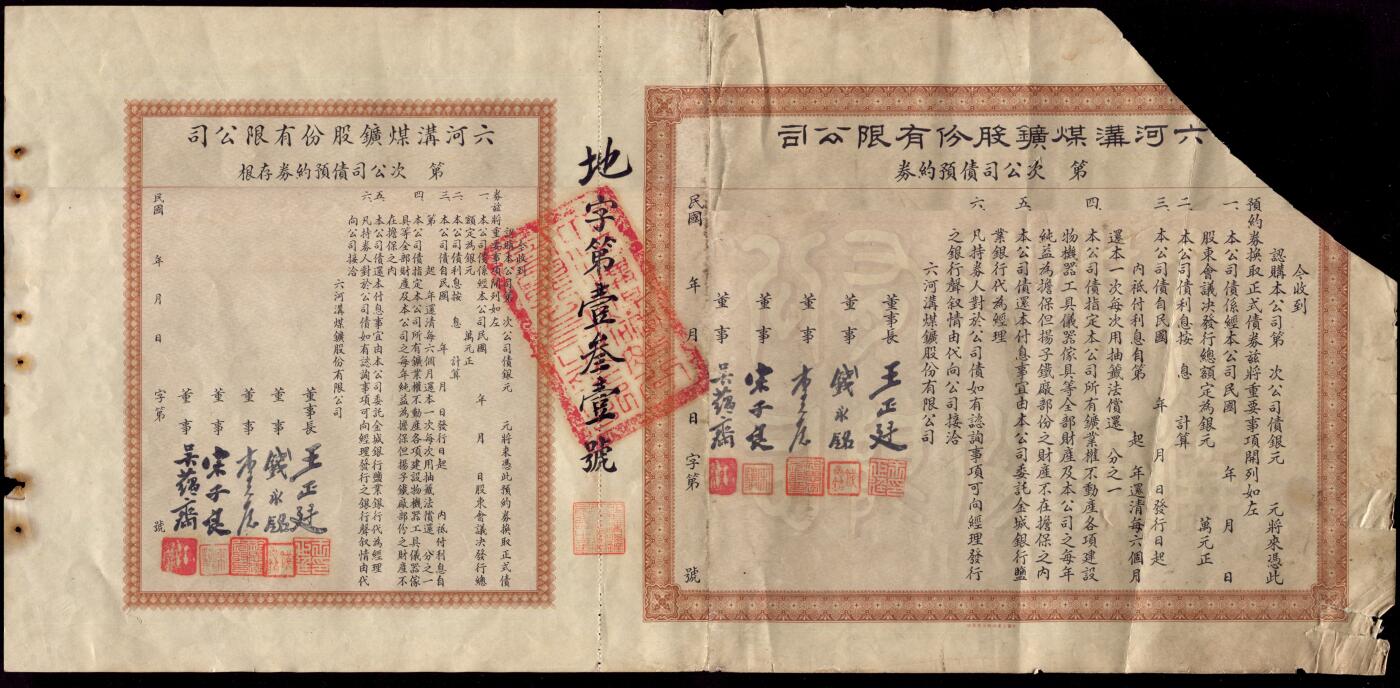 六河溝煤鑛股份有限公司
第 次公司債預約券
今收到
認購本公司第 次公司債銀元 元將來憑此
預約券換取正式債券茲將重要事項開列如左
一、本公司債係經本公司民國 年 月 日
股東會議決發行總額定為銀元 萬元正
二、本公司債利息按 息 計算
三、本公司債自民國 年 月 日發行日起
內祇付利息自第 起 年還清每六個月
還本一次每次用抽籤法償還 分之一
四、本公司債指定本公司所有鑛業權不動產各項建設
物機器工具儀器傢具等全部財產及本公司之每年
純益為擔保但揚子鐵廠部份之財產不在擔保之內
五、本公司債還本付息事宜由本公司委託金城銀行鹽
業銀行代為經理
六、凡持券人對於公司債如有認詢事項可向經理發行
之銀行聲叙情由代向公司接洽
六河溝煤鑛股份有限公司
董事長 王正廷
董事 錢永銘
董事
董事 宋子良
董事 吳蘊齋
民國 年 月 日 字第 號
地字第壹叄壹號
六河溝煤鑛股份有限公司
第 次公司債預約券存根
今收到
認購本公司第 次公司債銀元 元將來憑此預約券換取正式債
券茲將重要事項開列如左
一、本公司債係經本公司民國 年 月 日股東會議決發行總
額定為銀元 萬元正
二、本公司債利息按 息 計算
三、本公司債自民國 年 月 日發行日起 內祇付利息自
第 起 年還清每六個月還本一次每次用抽籤法償還 分之一
四、本公司債指定本公司所有鑛業權不動產各項建設物機器工具儀器傢
具等全部財產及本公司之每年純益為擔保但揚子鐵廠部份之財產不
在擔保之內
五、本公司債還本付息事宜由本公司委託金城銀行鹽業銀行代為經理
六、凡持券人對於公司債如有認詢事項可向經理發行之銀行聲叙情由代
向公司接洽
六河溝煤鑛股份有限公司
董事長 王正廷
董事 錢永銘
董事
董事 宋子良
董事 吳蘊齋
民國 年 月 日 字第 號